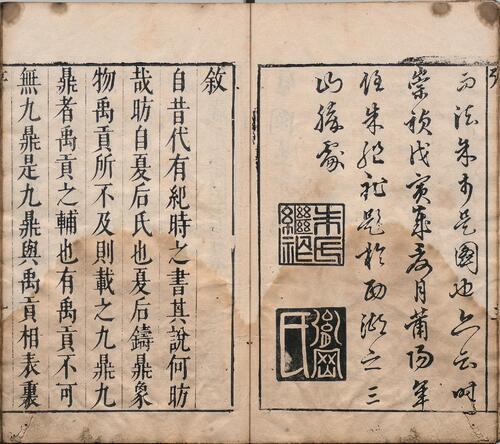 是圖也
崇禎戊寅年月莆陽年
朱繼祚題於西湖之三
山勝處
朱氏
繼祚
氏
敘
自昔代有紀時之書其說何昉
哉昉自夏后氏也夏后鑄鼎象
物禹貢所不及則載之九鼎九
鼎者禹貢之輔也有禹貢不可
無九鼎是九鼎與禹貢相表裏